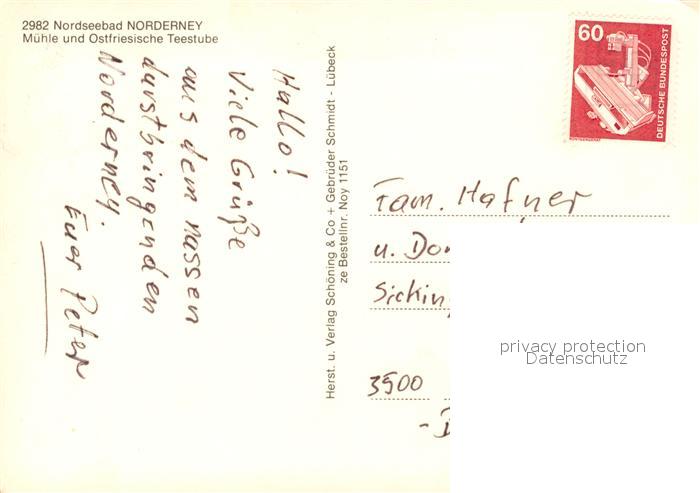 2982 Nordseebad NORDERNEY
Mühle und Ostfriesische Teestube
Hallo!
Viele Grüße
aus dem nassen
durstbringenden
Norderney.
Euer Peter
Herst. u. Verlag Schöning & Co + Gebrüder Schmidt - Lübeck
ze Bestellnr. Noy 1151
60
DEUTSCHE BUNDESPOST
RÖNTGENGERÄT
Fam. Hafner
u. Do
Sicking
3500
privacy protection
Datenschutz